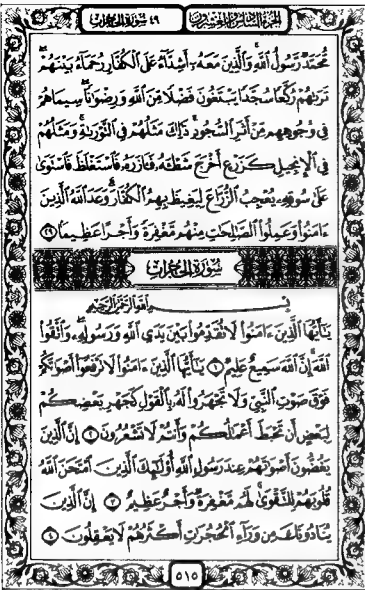 الجزء السادس والعشرون ٤٩ سورة الحجرات
مُّحَمَّدٌ رَّسُولُ ٱللَّهِ وَٱلَّذِينَ مَعَهُۥٓ أَشِدَّآءُ عَلَى ٱلْكُفَّارِ رُحَمَآءُ بَيْنَهُمْ
تَرَىٰهُمْ رُكَّعًا سُجَّدًا يَبْتَغُونَ فَضْلًا مِّنَ ٱللَّهِ وَرِضْوَٰنًا سِيمَاهُمْ
فِى وُجُوهِهِم مِّنْ أَثَرِ ٱلسُّجُودِ ذَٰلِكَ مَثَلُهُمْ فِى ٱلتَّوْرَىٰةِ وَمَثَلُهُمْ
فِى ٱلْإِنجِيلِ كَزَرْعٍ أَخْرَجَ شَطْـَٔهُۥ فَـَٔازَرَهُۥ فَٱسْتَغْلَظَ فَٱسْتَوَىٰ
عَلَىٰ سُوقِهِۦ يُعْجِبُ ٱلزُّرَّاعَ لِيَغِيظَ بِهِمُ ٱلْكُفَّارَ وَعَدَ ٱللَّهُ ٱلَّذِينَ
ءَامَنُوا۟ وَعَمِلُوا۟ ٱلصَّٰلِحَٰتِ مِنْهُم مَّغْفِرَةً وَأَجْرًا عَظِيمًۢا ٢٩
سورة الحجرات
بِسْمِ ٱللَّهِ ٱلرَّحْمَٰنِ ٱلرَّحِيمِ
يَٰٓأَيُّهَا ٱلَّذِينَ ءَامَنُوا۟ لَا تُقَدِّمُوا۟ بَيْنَ يَدَىِ ٱللَّهِ وَرَسُولِهِۦ وَٱتَّقُوا۟
ٱللَّهَ إِنَّ ٱللَّهَ سَمِيعٌ عَلِيمٌ ١ يَٰٓأَيُّهَا ٱلَّذِينَ ءَامَنُوا۟ لَا تَرْفَعُوٓا۟ أَصْوَٰتَكُمْ
فَوْقَ صَوْتِ ٱلنَّبِىِّ وَلَا تَجْهَرُوا۟ لَهُۥ بِٱلْقَوْلِ كَجَهْرِ بَعْضِكُمْ
لِبَعْضٍ أَن تَحْبَطَ أَعْمَٰلُكُمْ وَأَنتُمْ لَا تَشْعُرُونَ ٢ إِنَّ ٱلَّذِينَ
يَغُضُّونَ أَصْوَٰتَهُمْ عِندَ رَسُولِ ٱللَّهِ أُو۟لَٰٓئِكَ ٱلَّذِينَ ٱمْتَحَنَ ٱللَّهُ
قُلُوبَهُمْ لِلتَّقْوَىٰ لَهُم مَّغْفِرَةٌ وَأَجْرٌ عَظِيمٌ ٣ إِنَّ ٱلَّذِينَ
يُنَادُونَكَ مِن وَرَآءِ ٱلْحُجُرَٰتِ أَكْثَرُهُمْ لَا يَعْقِلُونَ ٤
٥١٥